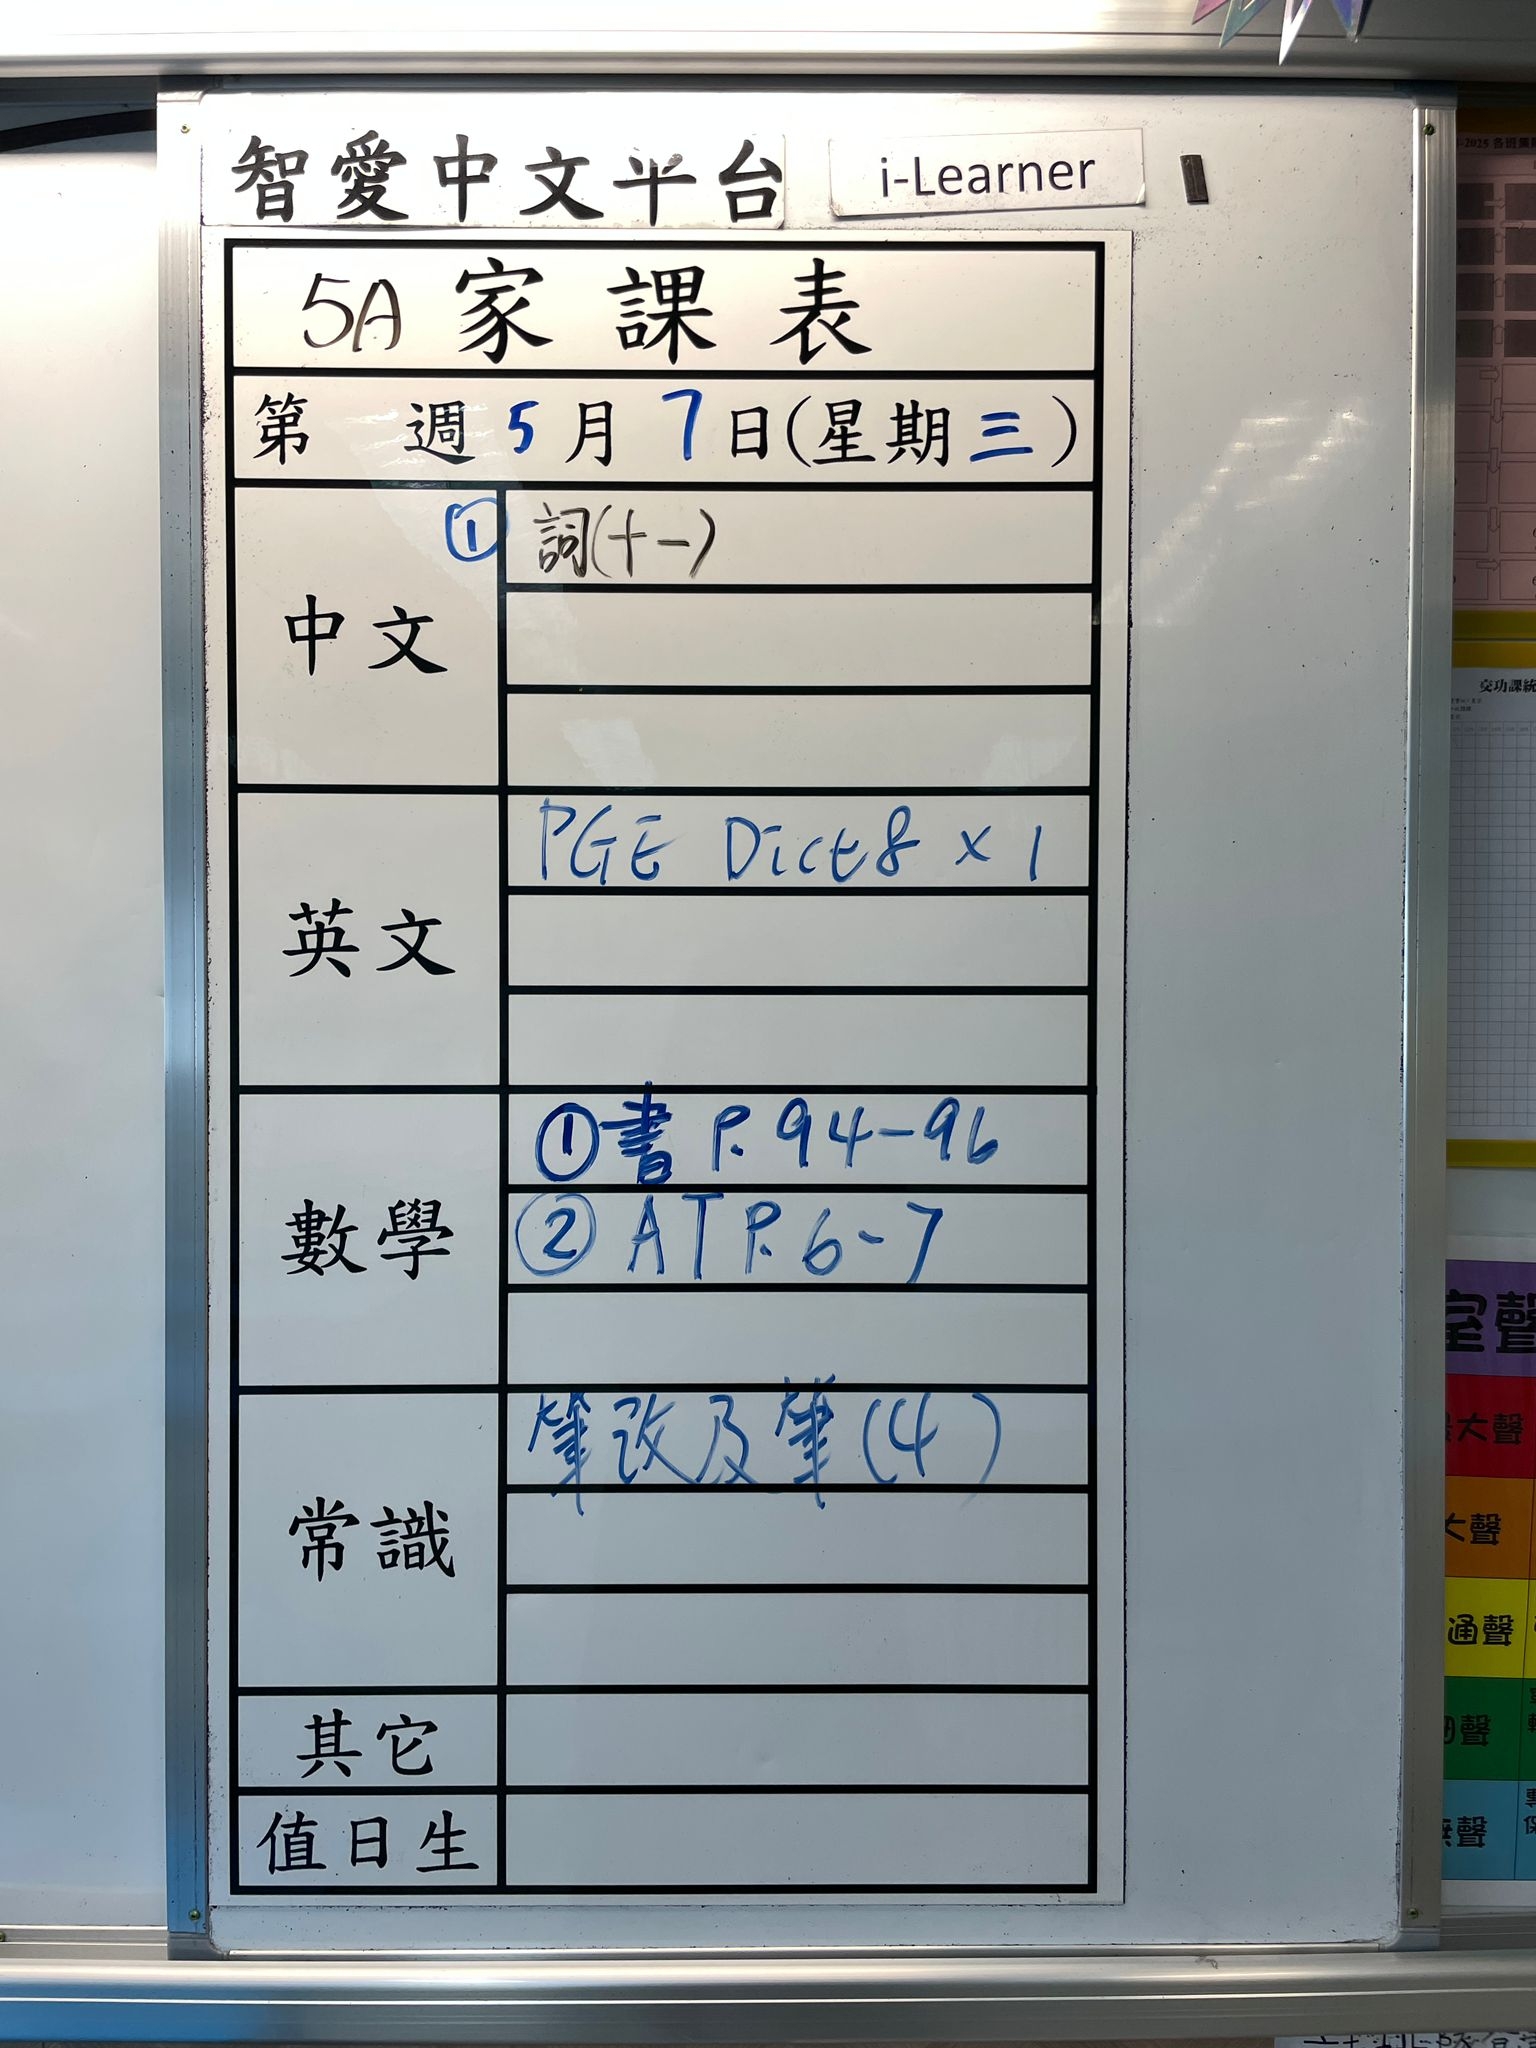 智愛中文平台 i-Learner
5A 家課表
第 週 5月7日(星期三)
中文
① 詞(十一)
英文
PGE Dict8 × 1
數學
① 書 P. 94-96
② AT P. 6-7
常識
筆改及筆(4)
其它
值日生
交功課統
大聲
大聲
通聲